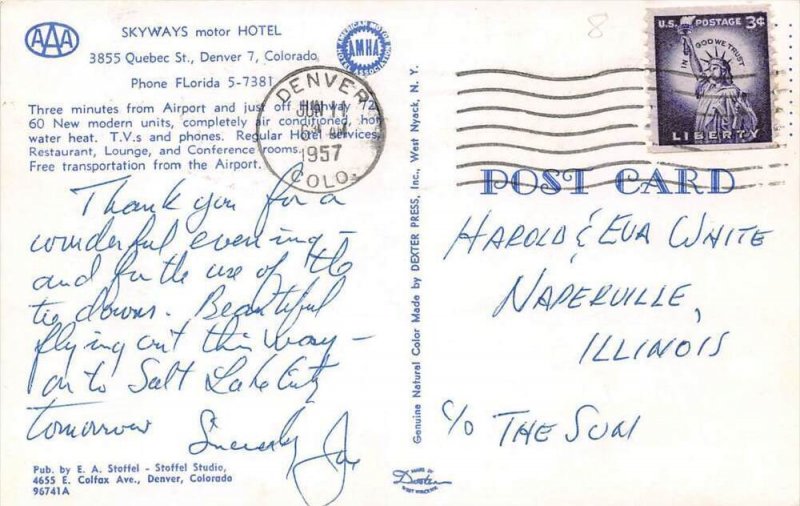 AAA
SKYWAYS motor HOTEL
3855 Quebec St., Denver 7, Colorado
Phone FLorida 5-7381
AMERICAN MOTOR
AMHA
HOTEL ASSOCIATION
Three minutes from Airport and just off Highway
60 New modern units, completely air conditioned, hot
water heat. T.V.s and phones. Regular Hotel services,
Restaurant, Lounge, and Conference rooms.
Free transportation from the Airport.
DENVER
JUN
1957
COLO.
8
U.S. POSTAGE 3¢
IN GOD WE TRUST
LIBERTY
POST CARD
Thank you for a
wonderful evening -
and for the use of the
tie downs. Beautiful
flying out this way -
on to Salt Lake City
tomorrow
Sincerely Joe
HAROLD & EVA WHITE
NAPERVILLE,
ILLINOIS
c/o THE SUN
Genuine Natural Color Made by DEXTER PRESS, Inc., West Nyack, N. Y.
Pub. by E. A. Stoffel - Stoffel Studio,
4655 E. Colfax Ave., Denver, Colorado
96741A
MADE BY
Dexter
WEST NYACK, N.Y.